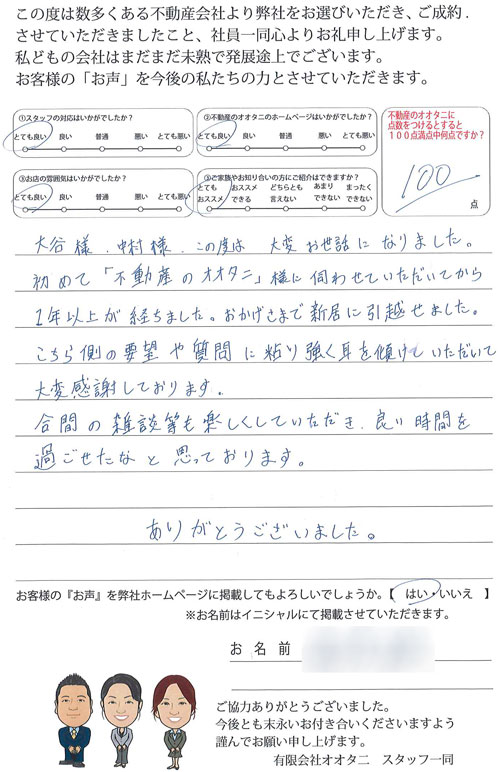 この度は数多くある不動産会社より弊社をお選びいただき、ご成約．
させていただきましたこと、社員一同心よりお礼申し上げます。
私どもの会社はまだまだ未熟で発展途上でございます。
お客様の「お声」を今後の私たちの力とさせていただきます。
①スタッフの対応はいかがでしたか？
とても良い 良い 普通 悪い とても悪い
②不動産のオオタニのホームページはいかがですか？
とても良い 良い 普通 悪い とても悪い
③お店の雰囲気はいかがでしたか？
とても良い 良い 普通 悪い とても悪い
③ご家族やお知り合いの方にご紹介はできますか？
とても オススメ どちらとも あまり まったく
オススメ できる 言えない できない できない
不動産のオオタニに
点数をつけるとすると
１００点満点中何点ですか？
100
点
大谷様．中村様．この度は 大変お世話になりました。
初めて「不動産のオオタニ」様に伺わせていただいてから
1年以上が経ちました。おかげさまで新居に引越せました。
こちら側の要望や質問に粘り強く耳を傾けていただいて
大変感謝しております。
合間の雑談等も楽しくしていただき、良い時間を
過ごせたなと思っております。
ありがとうございました。
お客様の『お声』を弊社ホームページに掲載してもよろしいでしょうか。【 はい・いいえ 】
※お名前はイニシャルにて掲載させていただきます。
お 名 前
ご協力ありがとうございました。
今後とも末永いお付き合いくださいますよう
謹んでお願い申し上げます。
有限会社オオタニ スタッフ一同